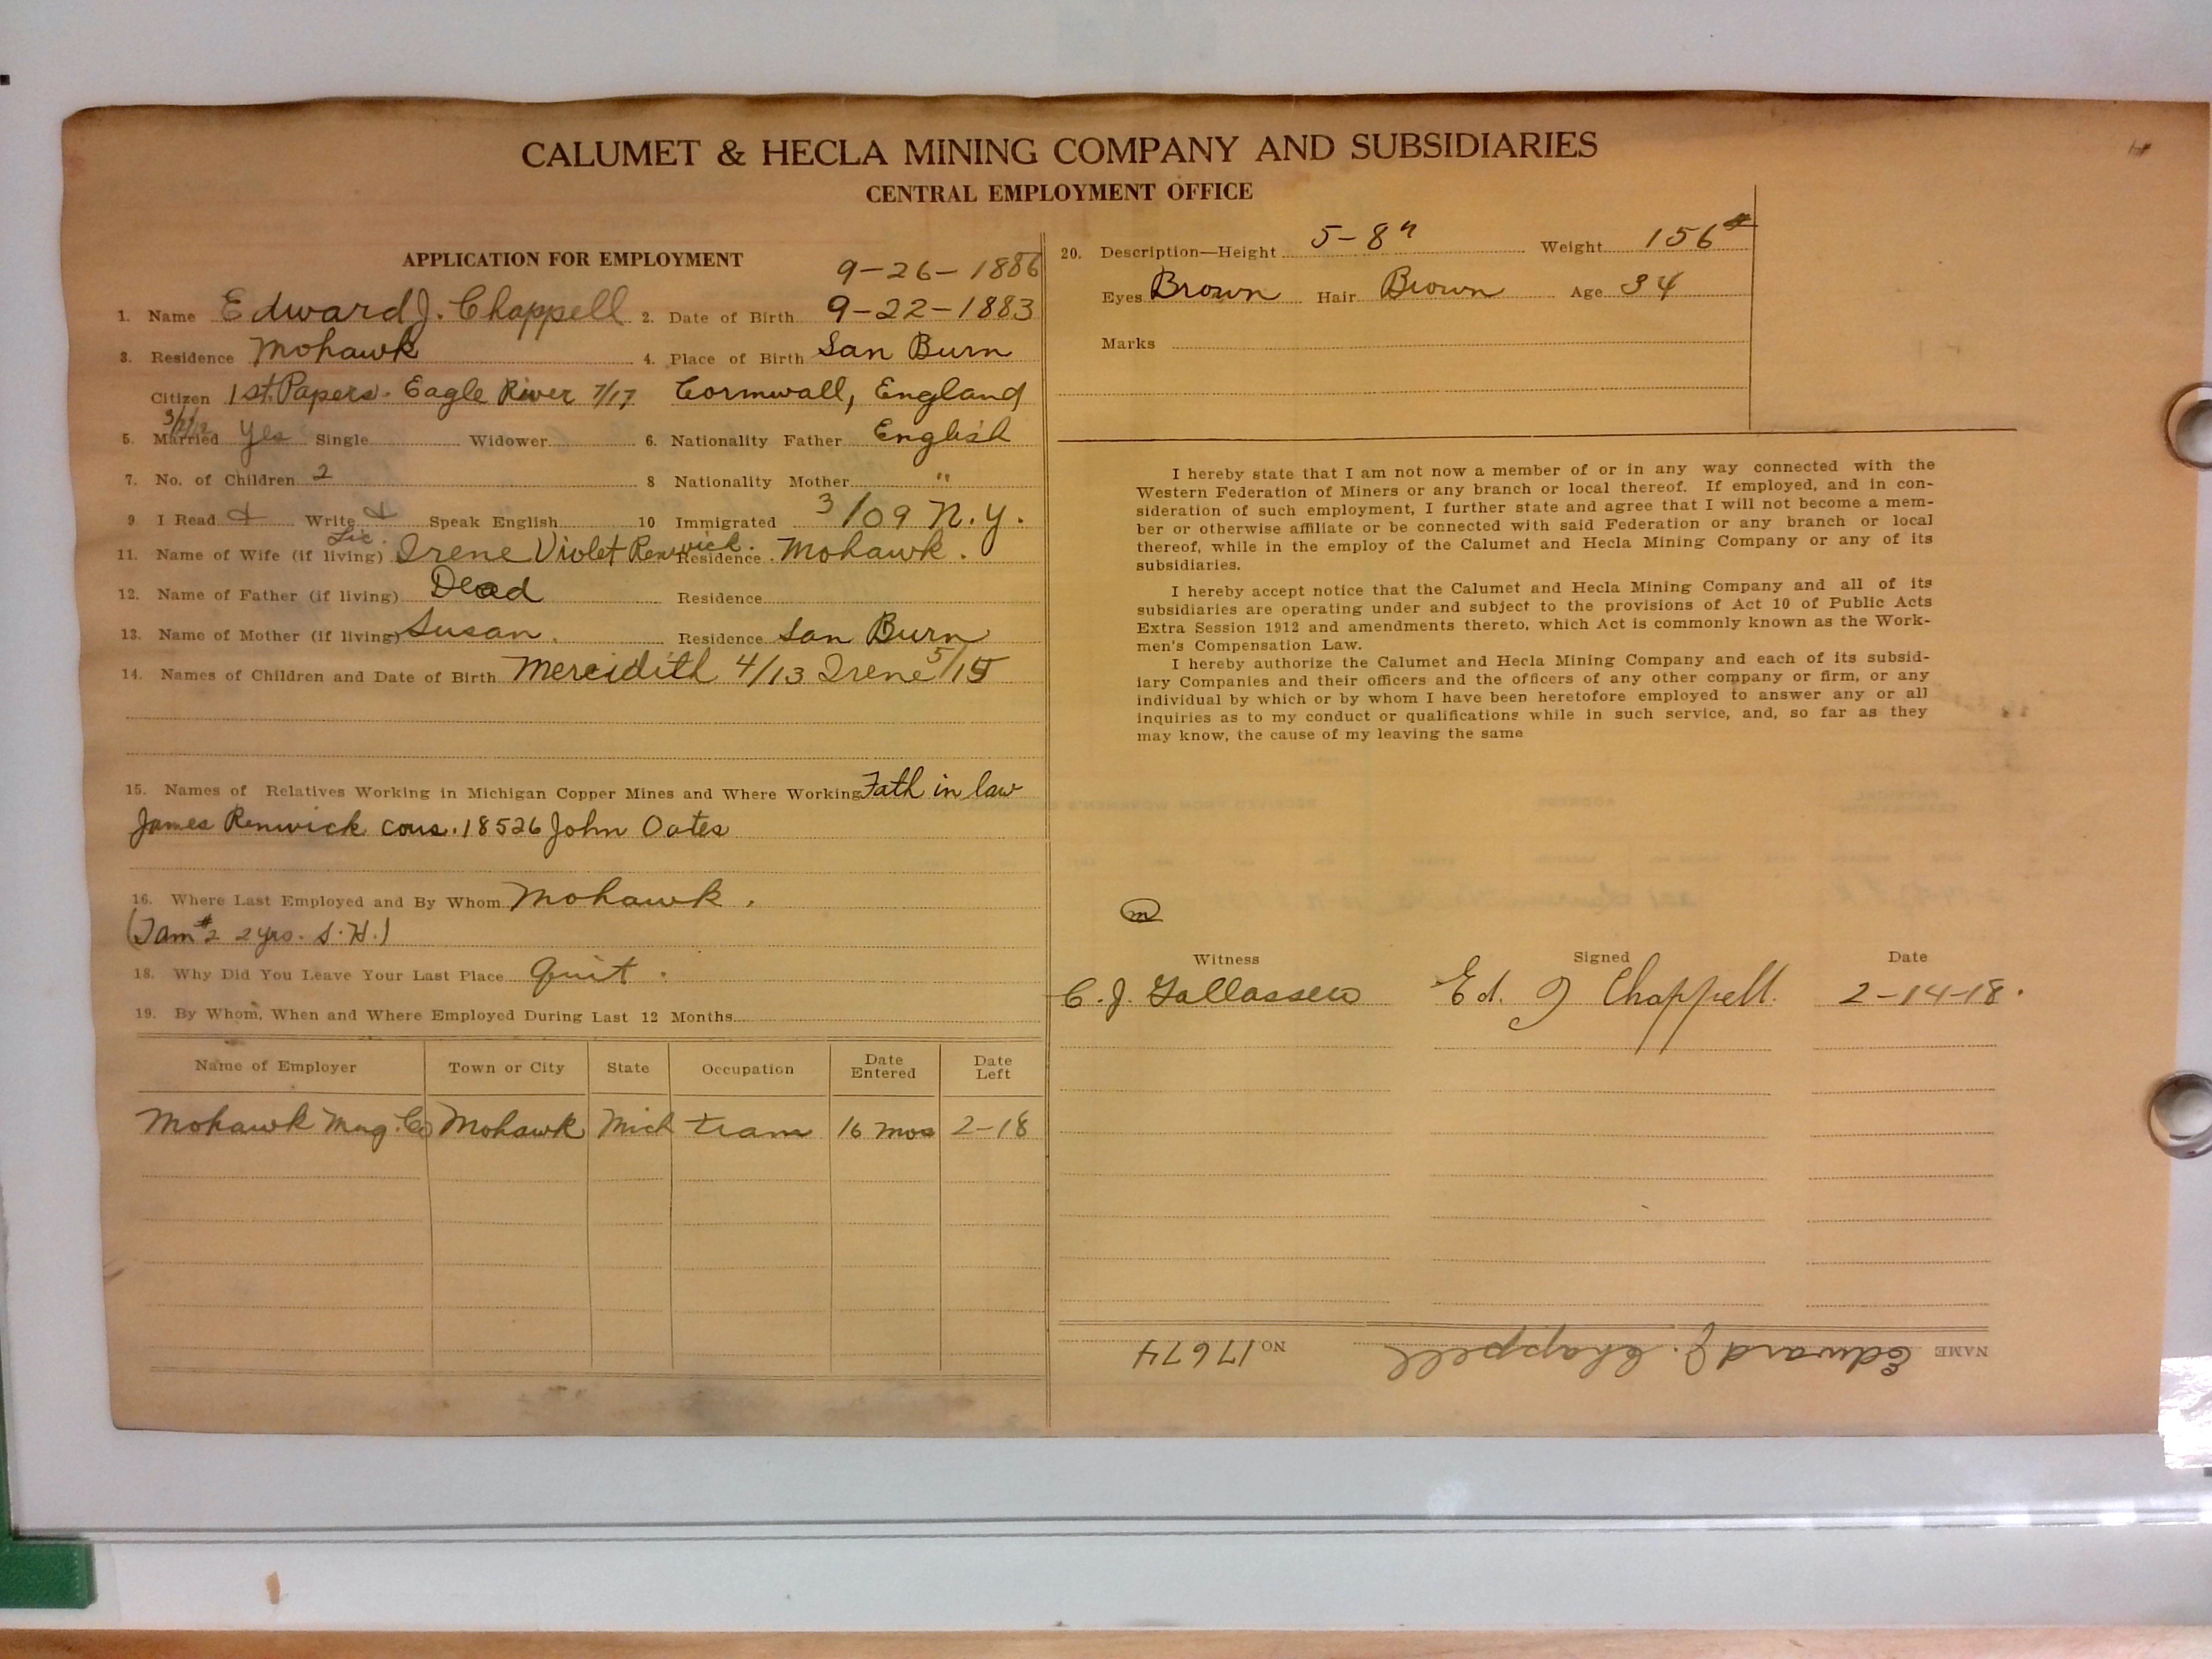 CALUMET & HECLA MINING COMPANY AND SUBSIDIARIES
CENTRAL EMPLOYMENT OFFICE
APPLICATION FOR EMPLOYMENT
9-26-1886
1. Name Edward J. Chappell 2. Date of Birth 9-22-1883
3. Residence Mohawk 4. Place of Birth San Burn
Citizen 1st Papers. Eagle River 7/17 Cornwall, England
5. Married Yes Single Widower 6. Nationality Father English
7. No. of Children 2 8 Nationality Mother "
9 I Read Write Speak English 10 Immigrated 3/09 N.Y.
11. Name of Wife (if living) Irene Violet Renwick. Residence Mohawk.
12. Name of Father (if living) Dead Residence
13. Name of Mother (if living) Susan. Residence San Burn
14. Names of Children and Date of Birth Mereidith 4/13 Irene 5/15
15. Names of Relatives Working in Michigan Copper Mines and Where Working Fath in law
James Renwick cous. 18526 John Oates
16. Where Last Employed and By Whom Mohawk.
2 yrs. S.H.)
18. Why Did You Leave Your Last Place Quit.
19. By Whom, When and Where Employed During Last 12 Months
Name of Employer Town or City State Occupation Date Entered Date Left
Mohawk Mng. Co Mohawk Mich tram 16 mos 2-18
20. Description—Height 5-8" Weight 156#
Eyes Brown Hair Brown Age 34
Marks
I hereby state that I am not now a member of or in any way connected with the
Western Federation of Miners or any branch or local thereof. If employed, and in con-
sideration of such employment, I further state and agree that I will not become a mem-
ber or otherwise affiliate or be connected with said Federation or any branch or local
thereof, while in the employ of the Calumet and Hecla Mining Company or any of its
subsidiaries.
I hereby accept notice that the Calumet and Hecla Mining Company and all of its
subsidiaries are operating under and subject to the provisions of Act 10 of Public Acts
Extra Session 1912 and amendments thereto, which Act is commonly known as the Work-
men's Compensation Law.
I hereby authorize the Calumet and Hecla Mining Company and each of its subsid-
iary Companies and their officers and the officers of any other company or firm, or any
individual by which or by whom I have been heretofore employed to answer any or all
inquiries as to my conduct or qualifications while in such service, and, so far as they
may know, the cause of my leaving the same
m
Witness Signed Date
C. J. Ed. J Chappell. 2-14-18.
NAME Edward J. Chappell NO. 17674